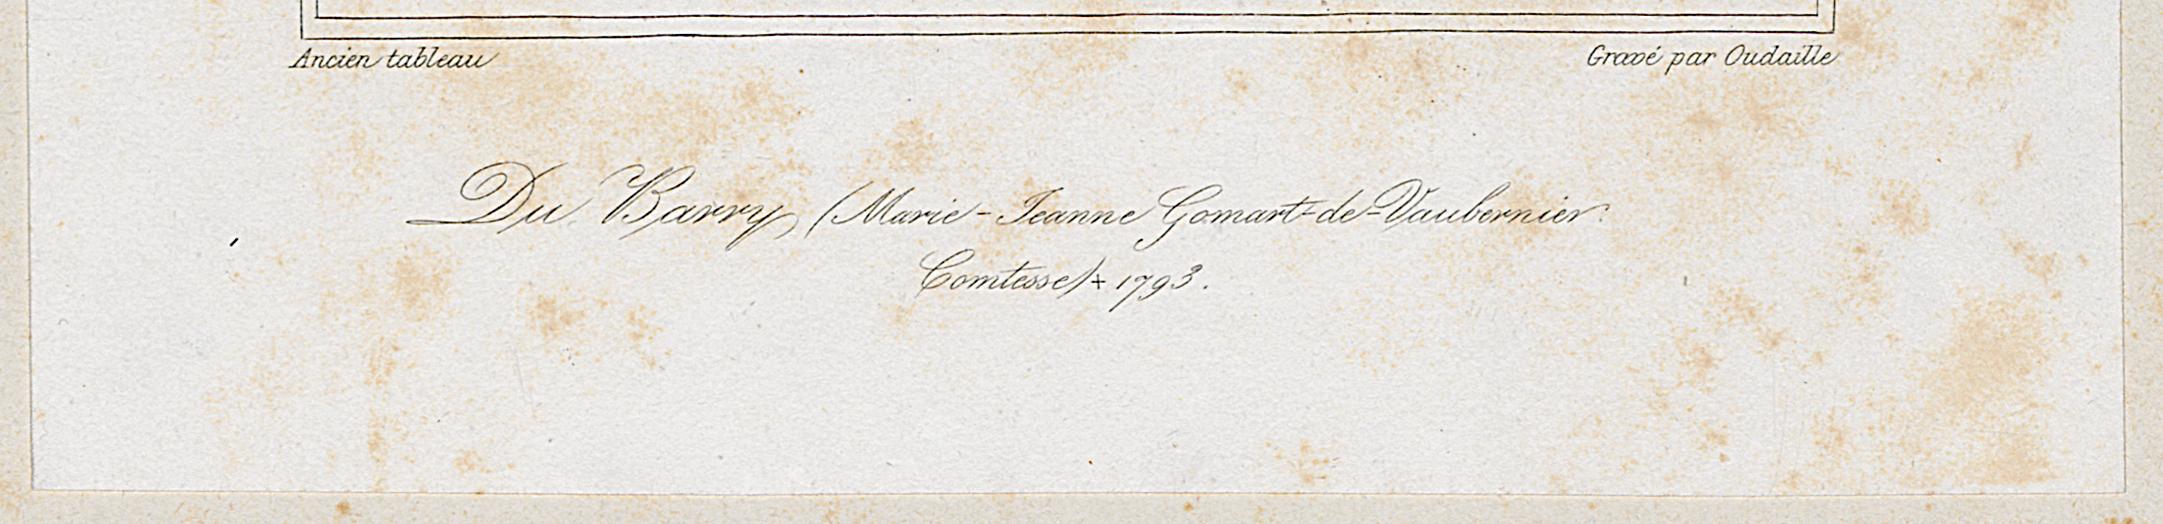 Ancien tableau
Gravé par Oudaille
Du Barry (Marie-Jeanne Gomart-de-Vaubernier.
Comtesse) + 1793.